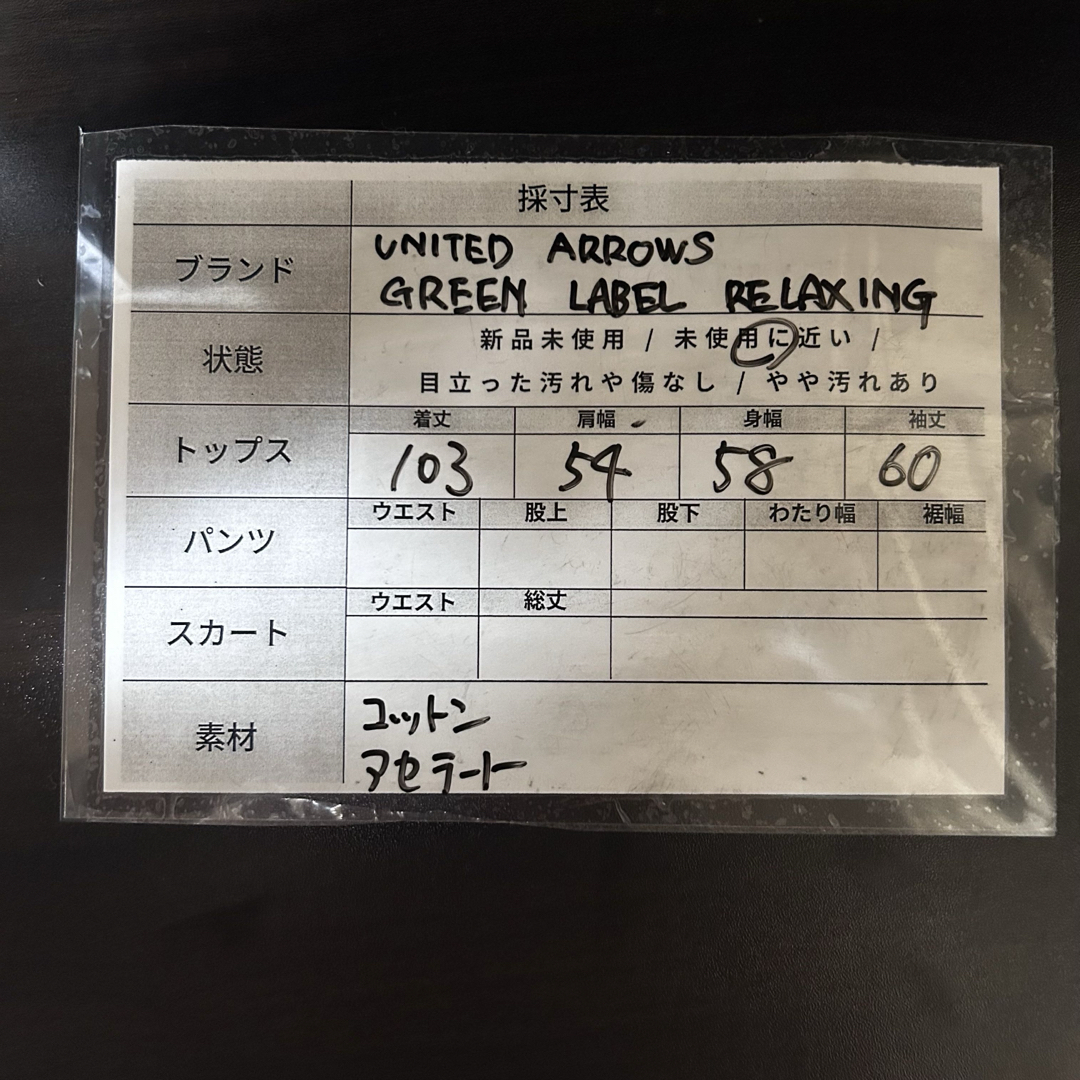 採寸表
ブランド
UNITED ARROWS
GREEN LABEL RELAXING
状態
新品未使用 / 未使用に近い /
目立った汚れや傷なし / やや汚れあり
トップス
着丈 肩幅 身幅 袖丈
103 54 58 60
パンツ
ウエスト 股上 股下 わたり幅 裾幅
スカート
ウエスト 総丈
素材
コットン
アセテート